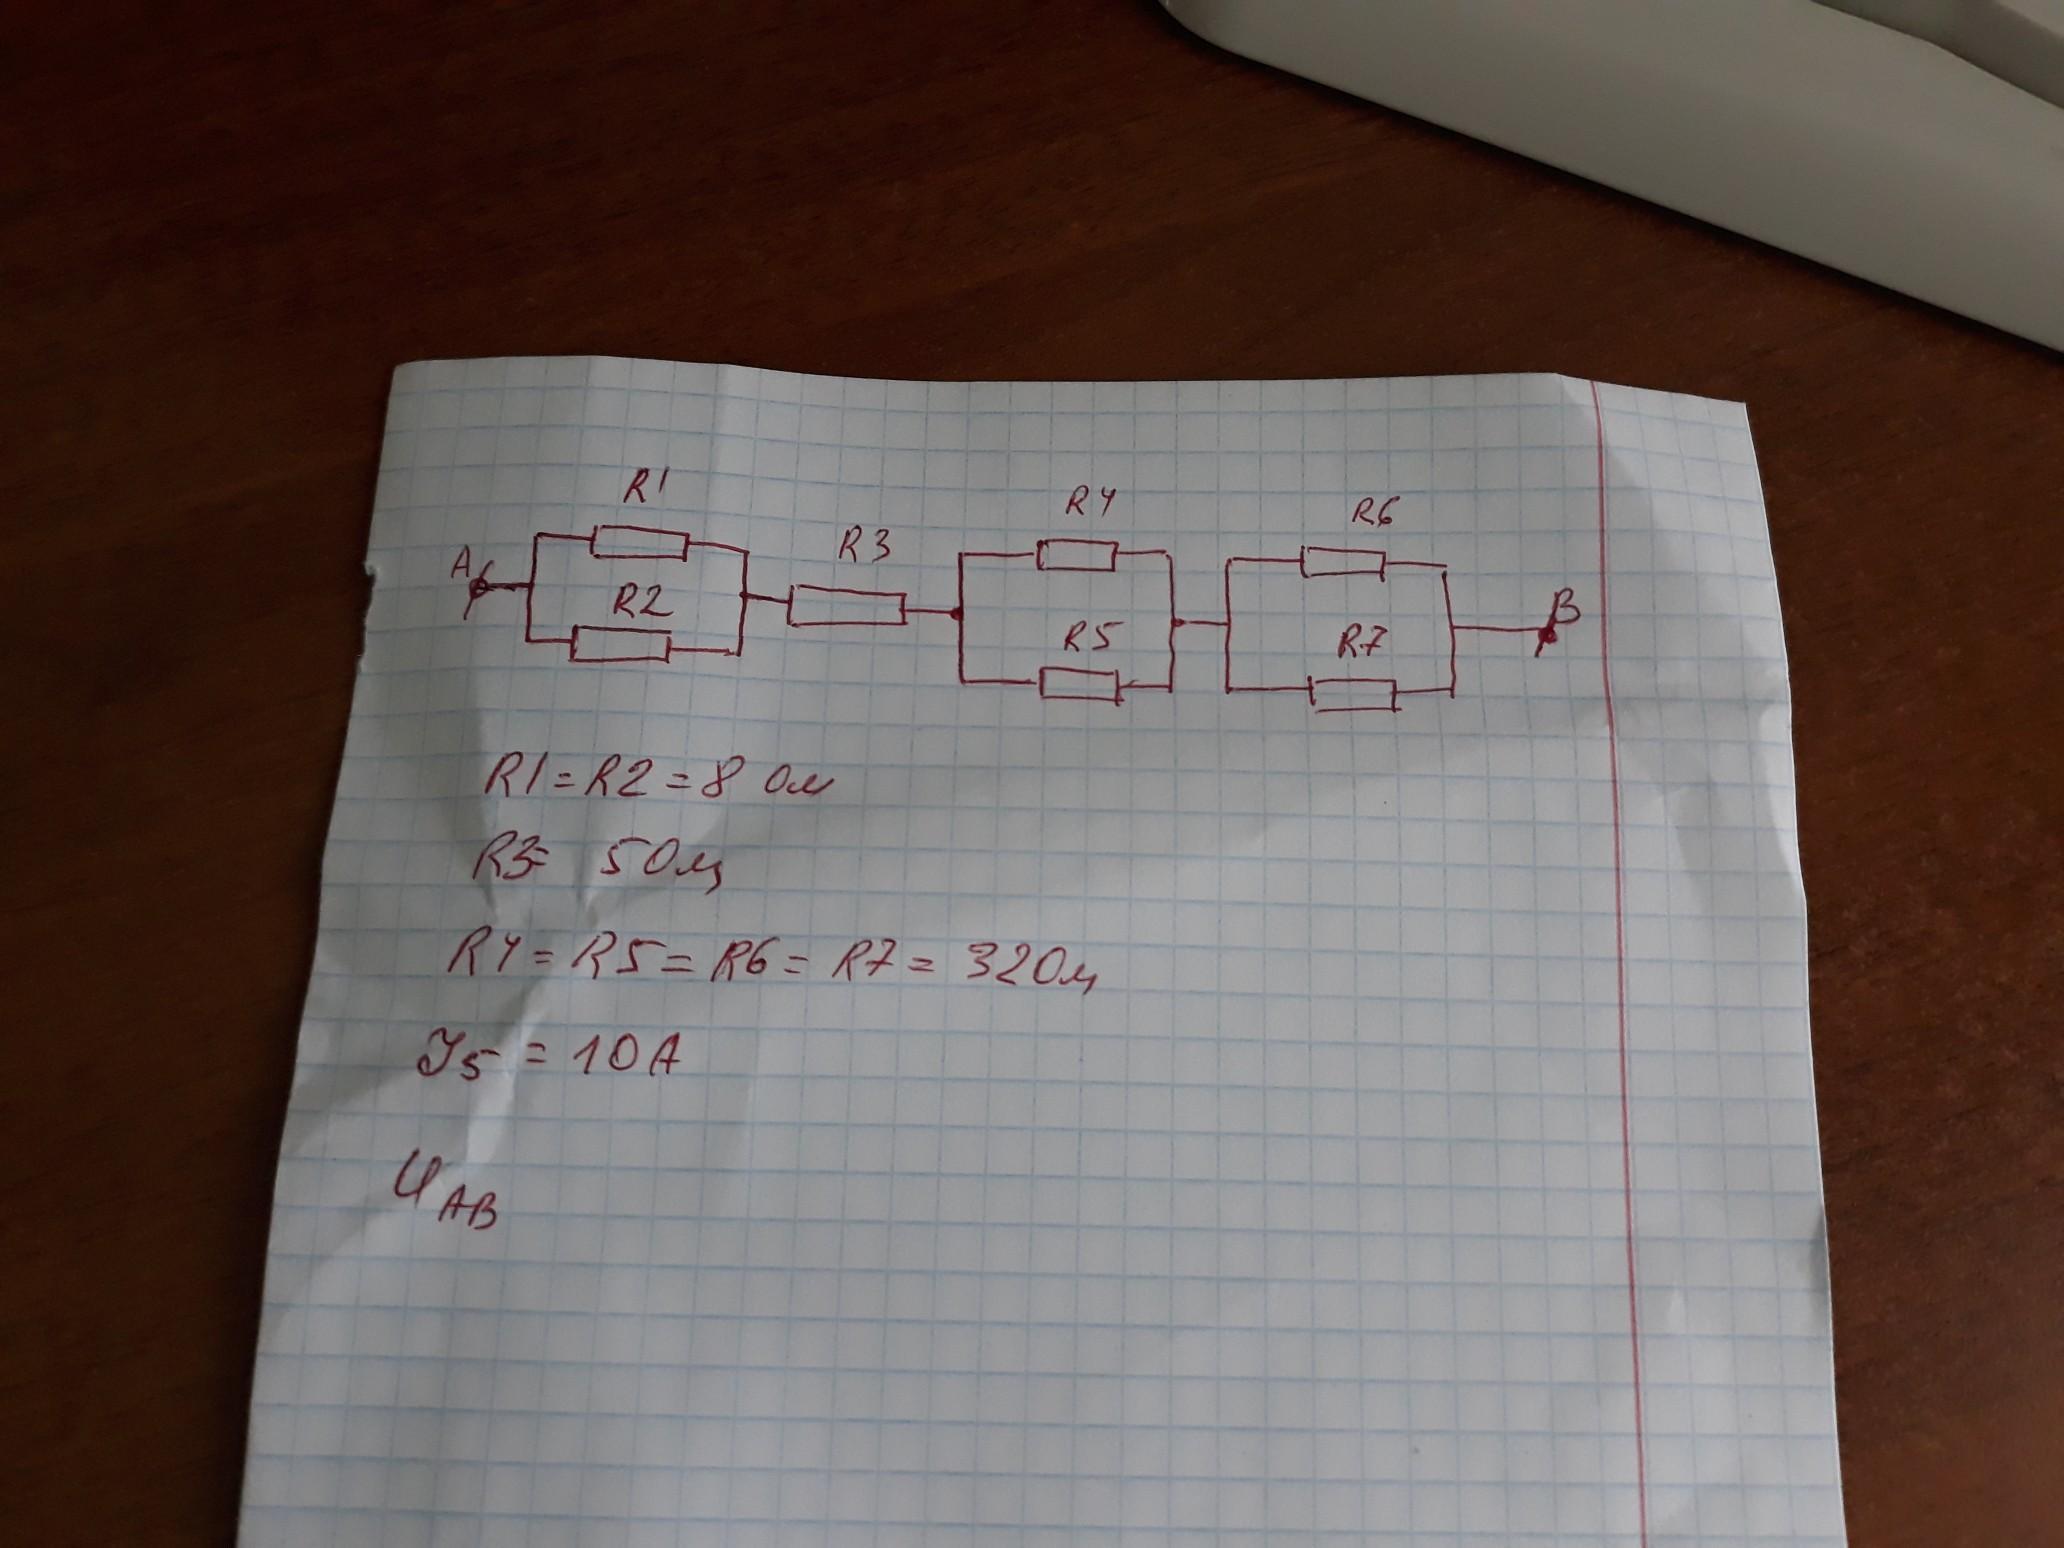 R1
R4
R6
A
R3
B
R2
R5
R7
R1=R2=8 Ом
R3= 5 Ом
R4=R5=R6=R7=32Ом
I5 = 10A
UAB